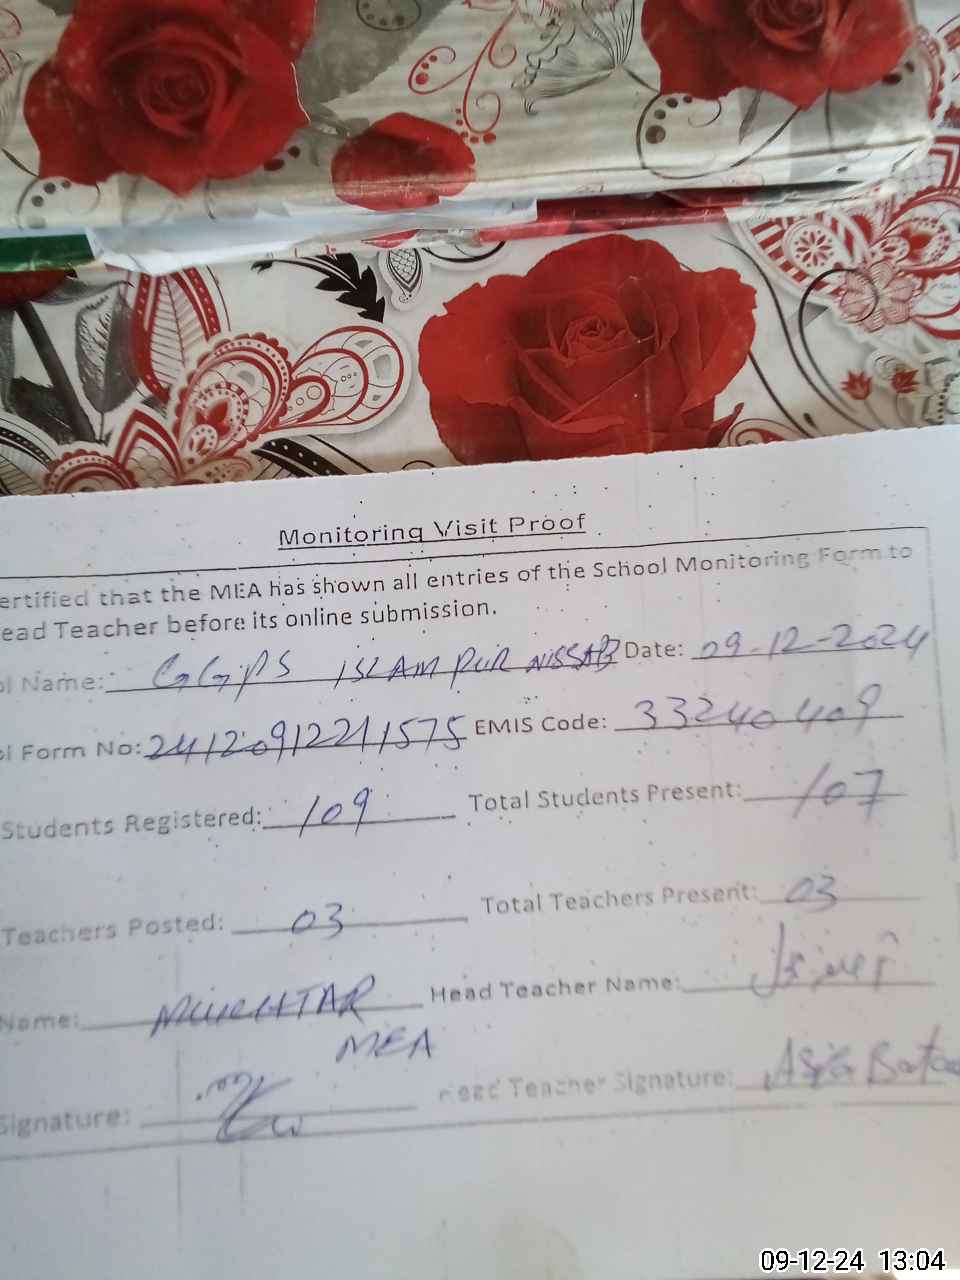 Monitoring Visit Proof
ertified that the MEA has shown all entries of the School Monitoring Form to
ead Teacher before its online submission.
ol Name: GGPS ISLAM PUR NISSAB Date: 09-12-2024
ol Form No: 24120912211575 EMIS Code: 33240409
Students Registered: 109 Total Students Present: 107
Teachers Posted: 03 Total Teachers Present: 03
Name: MUKHTAR Head Teacher Name:
MEA
Signature: Head Teacher Signature: Asia
09-12-24 13:04